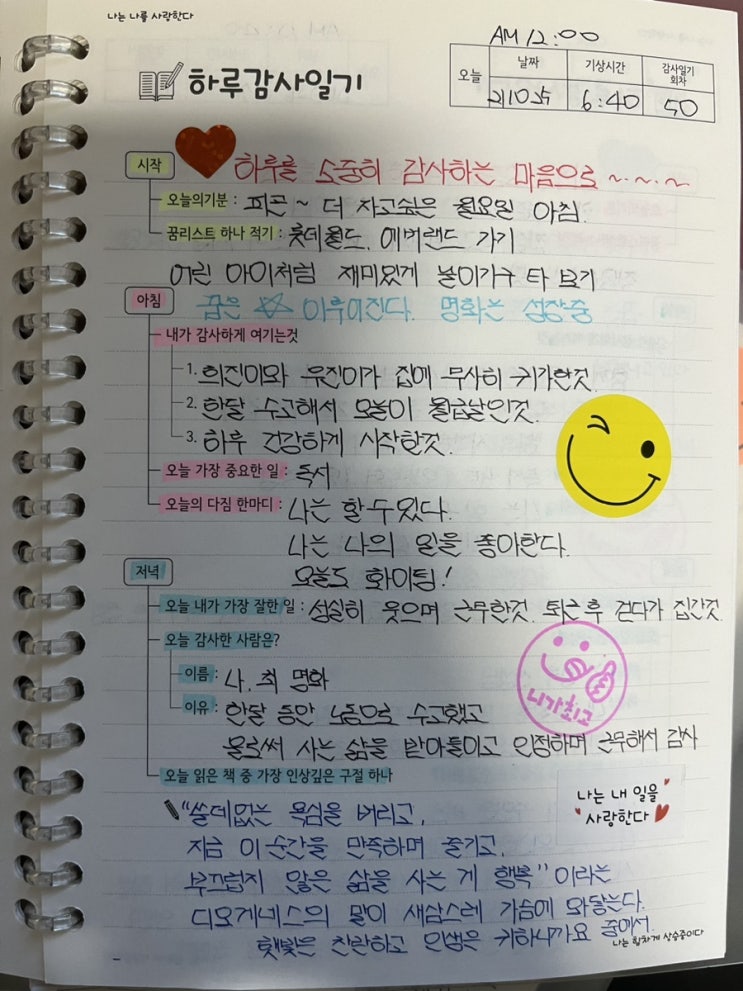 나는 나를 사랑한다
AM 12:00
하루감사일기
오늘 날짜 기상시간 감사일기 회차
211025 6:40 50
시작 하루를 소중히 감사하는 마음으로~.~.~
오늘의기분 : 피곤~ 더 자고싶은 월요일 아침.
꿈리스트 하나 적기 : 롯데월드. 에버랜드 가기
어린 아이처럼 재미있게 놀이기구 타 보기
아침 꿈은 이루어진다. 명화는 성장중
내가 감사하게 여기는것
1. 희진이와 유진이가 집에 무사히 귀가한것.
2. 한달 수고해서 오늘이 월급날인것.
3. 하루 건강하게 시작한것.
오늘 가장 중요한 일 : 독서
오늘의 다짐 한마디 : 나는 할 수 있다.
나는 나의 일을 좋아한다.
저녁 오늘도 화이팅!
오늘 내가 가장 잘한 일 : 성실히 웃으며 근무한것. 퇴근 후 걷다가 집간것.
오늘 감사한 사람은?
이름 : 나. 최 명화
이유 : 한달 동안 노동으로 수고했고
몸로써 사는 삶을 받아들이고 인정하며 근무해서 감사
니가최고
오늘 읽은 책 중 가장 인상깊은 구절 하나
나는 내 일을
사랑한다
"쓸데없는 욕심을 버리고.
지금 이 순간을 만족하며 즐기고.
부끄럽지 않은 삶을 사는 게 행복" 이라는
디오게네스의 말이 새삼스레 가슴에 와닿는다.
햇빛은 찬란하고 인생은 귀하니까요 중에서.
나는 힘차게 상승중이다